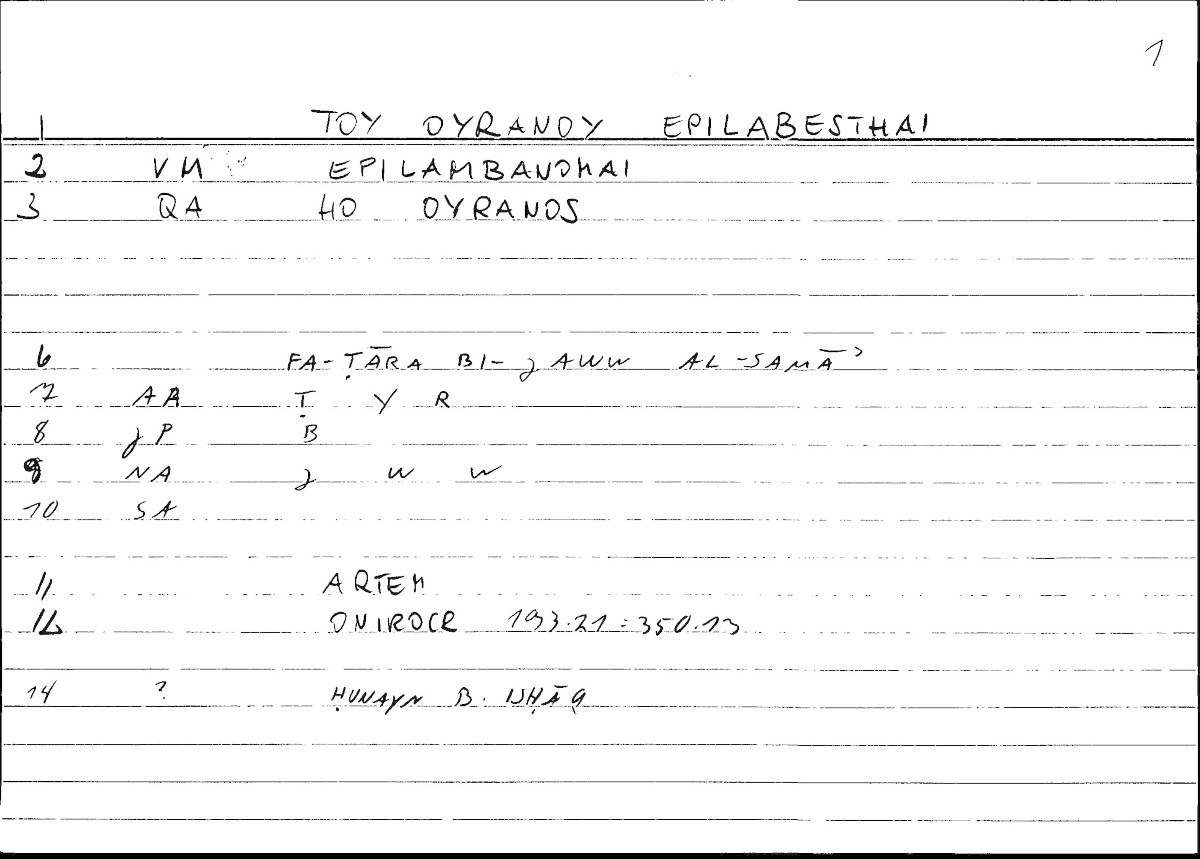 1
1 TOY OYRANOY EPILABESTHAI
2 VM EPILAMBANOMAI
3 QA HO OYRANOS
6 FA-ṬĀRA BI-JAWW AL-SAMĀʾ
7 AA Ṭ Y R
8 JP B
9 NA J W W
10 SA
11 ARTEM
12 ONIROCR 193.21 = 350.13
14 ? ḤUNAYN B. ISḤĀQ